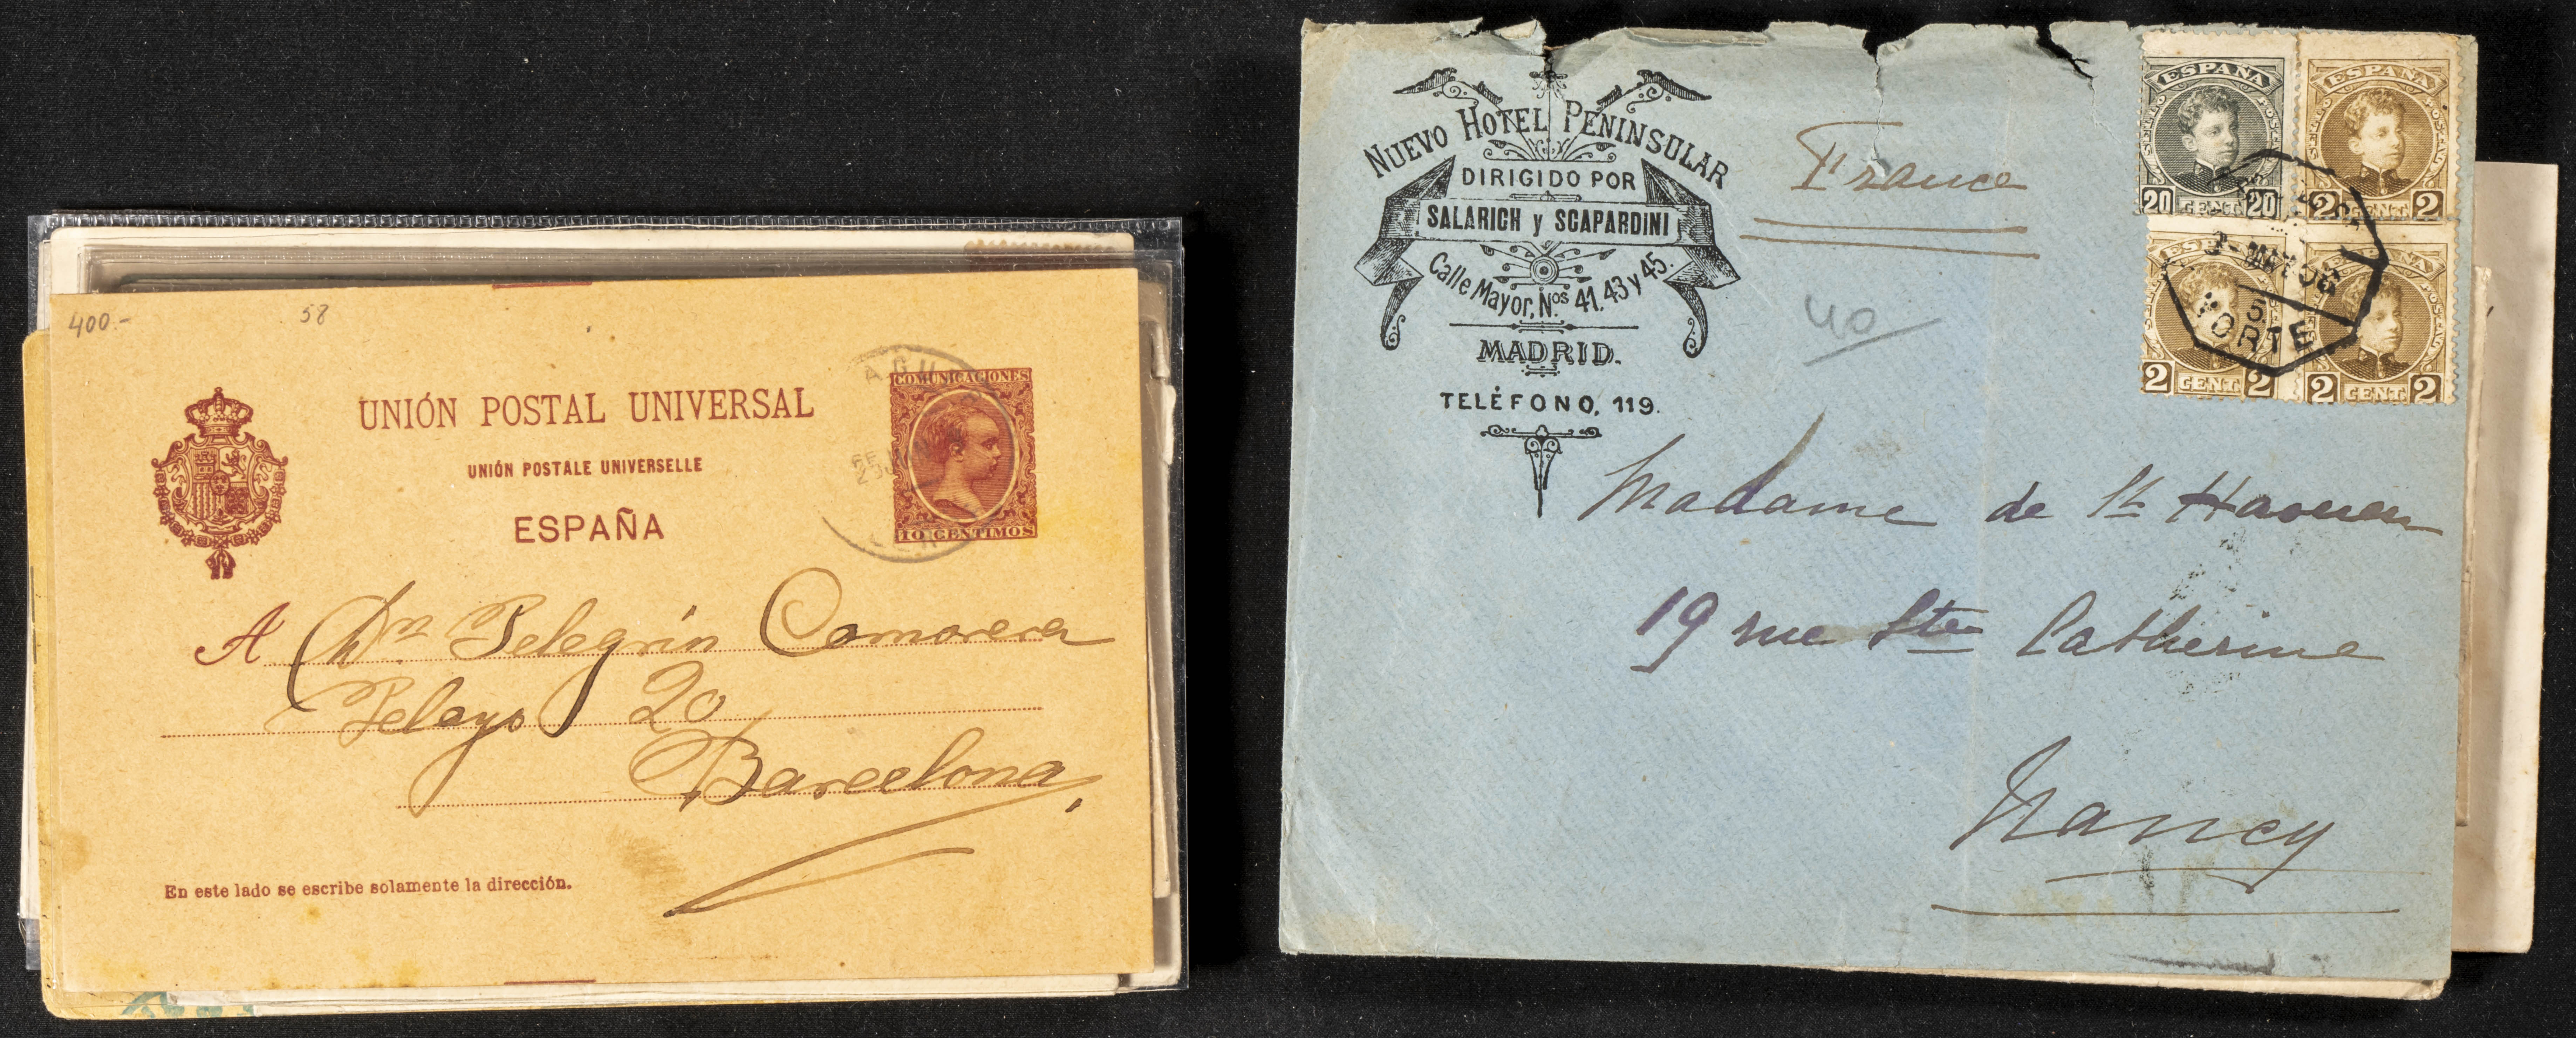 400.-
58
UNIÓN POSTAL UNIVERSAL
UNIÓN POSTALE UNIVERSELLE
ESPAÑA
COMUNICACIONES
10 CENTIMOS
A Dn Pelegrín Comorera
Pelayo 20
Barcelona
En este lado se escribe solamente la dirección.
NUEVO HOTEL PENINSULAR
DIRIGIDO POR
SALARICH y SCAPARDINI
Calle Mayor, Nos 41. 43 y 45.
MADRID.
TELÉFONO, 119.
France
40
ESPAÑA
20 CENT. 20
ESPAÑA
2 CENT. 2
ESPAÑA
2 CENT. 2
ESPAÑA
2 CENT. 2
Madame de St
19 rue Ste Catherine
Nancy